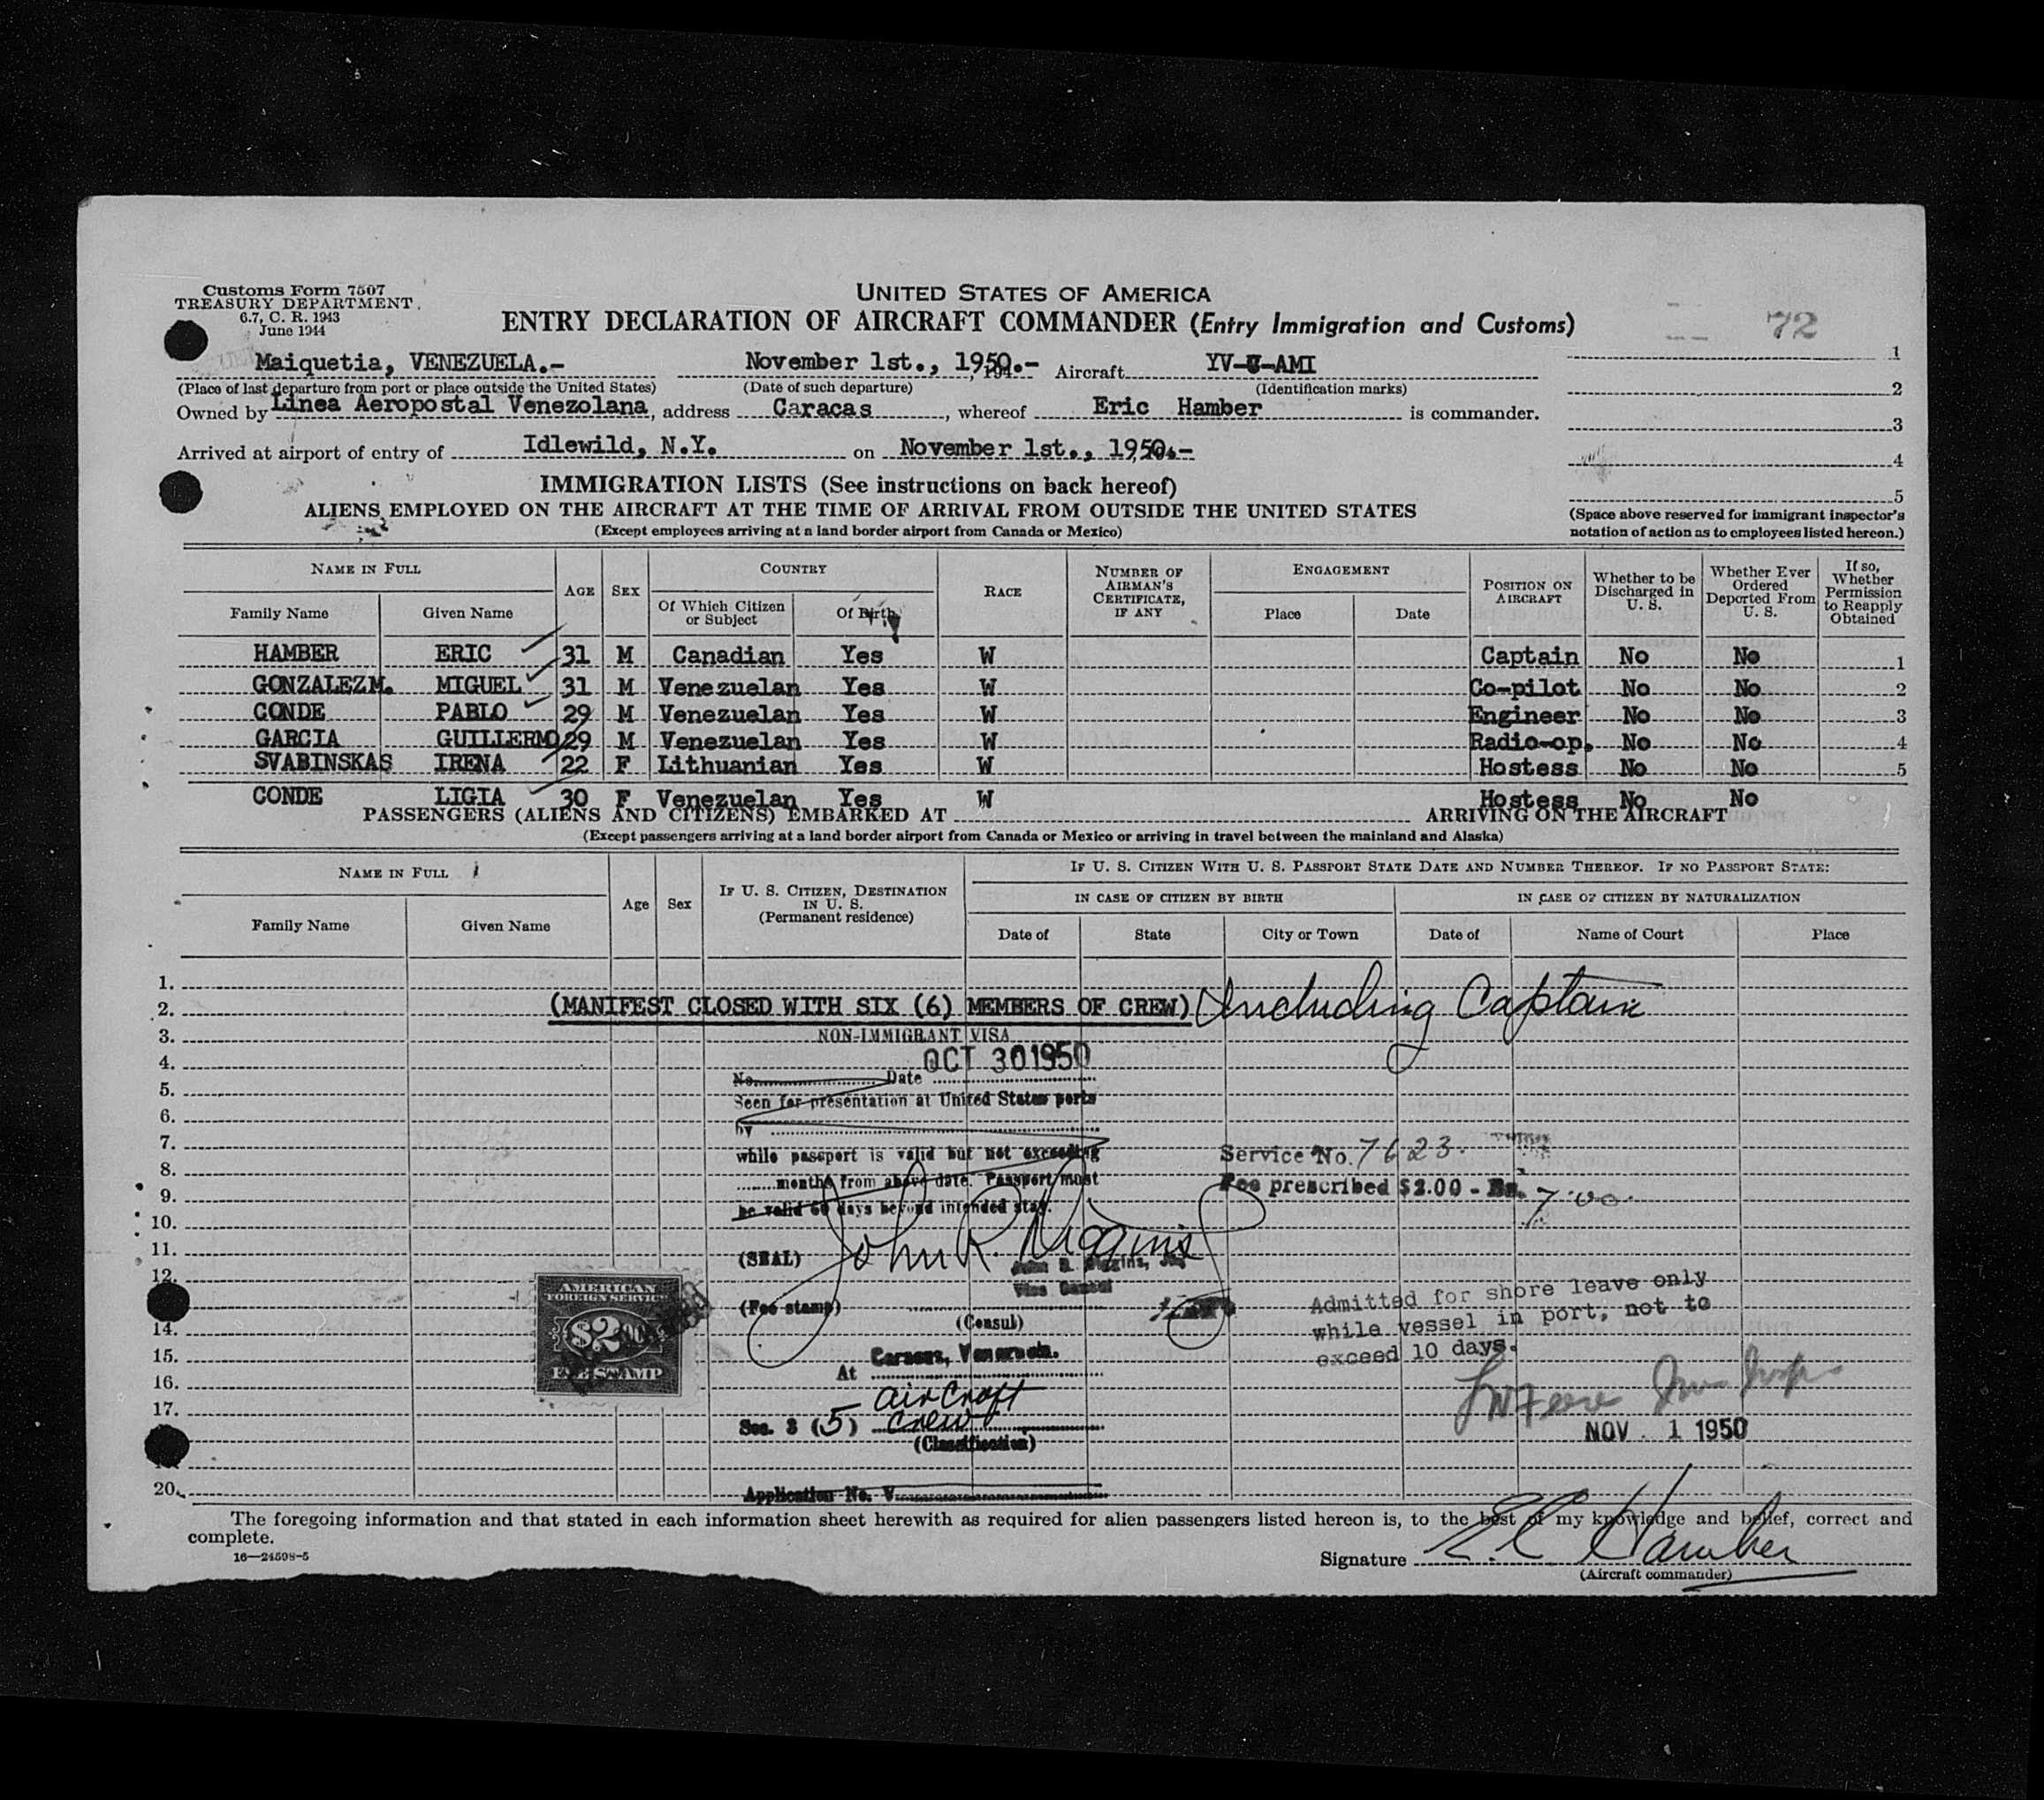 Customs Form 7507
TREASURY DEPARTMENT
6.7, C. R. 1943
June 1944
UNITED STATES OF AMERICA
ENTRY DECLARATION OF AIRCRAFT COMMANDER (Entry Immigration and Customs)
72
Maiquetia, VENEZUELA.- November 1st., 1950.- Aircraft YV-C-AMI
(Place of last departure from port or place outside the United States) (Date of such departure) (Identification marks)
Owned by Linea Aeropostal Venezolana, address Caracas, whereof Eric Hamber is commander.
Arrived at airport of entry of Idlewild, N.Y. on November 1st., 1950.-
1
2
3
4
5
(Space above reserved for immigrant inspector's
notation of action as to employees listed hereon.)
IMMIGRATION LISTS (See instructions on back hereof)
ALIENS EMPLOYED ON THE AIRCRAFT AT THE TIME OF ARRIVAL FROM OUTSIDE THE UNITED STATES
(Except employees arriving at a land border airport from Canada or Mexico)
NAME IN FULL AGE SEX COUNTRY RACE NUMBER OF AIRMAN'S CERTIFICATE, IF ANY ENGAGEMENT POSITION ON AIRCRAFT Whether to be Discharged in U. S. Whether Ever Ordered Deported From U. S. If so, Whether Permission to Reapply Obtained
Family Name Given Name Of Which Citizen or Subject Of Birth Place Date
HAMBER ERIC 31 M Canadian Yes W Captain No No 1
GONZALEZ M. MIGUEL 31 M Venezuelan Yes W Co-pilot No No 2
CONDE PABLO 29 M Venezuelan Yes W Engineer No No 3
GARCIA GUILLERMO 29 M Venezuelan Yes W Radio-op. No No 4
SVABINSKAS IRENA 22 F Lithuanian Yes W Hostess No No 5
CONDE LIGIA 30 F Venezuelan Yes W Hostess No No
PASSENGERS (ALIENS AND CITIZENS) EMBARKED AT ARRIVING ON THE AIRCRAFT
(Except passengers arriving at a land border airport from Canada or Mexico or arriving in travel between the mainland and Alaska)
NAME IN FULL Age Sex IF U. S. CITIZEN, DESTINATION IN U. S. (Permanent residence) IF U. S. CITIZEN WITH U. S. PASSPORT STATE DATE AND NUMBER THEREOF. IF NO PASSPORT STATE:
IN CASE OF CITIZEN BY BIRTH IN CASE OF CITIZEN BY NATURALIZATION
Family Name Given Name Date of State City or Town Date of Name of Court Place
1.
2. (MANIFEST CLOSED WITH SIX (6) MEMBERS OF CREW) Including Captain
3. NON-IMMIGRANT VISA
4. OCT 30 1950
No. Date
5.
Seen for presentation at United States ports
6.
by
7.
while passport is valid but not exceeding
Service No. 7623.
8.
months from above date. Passport must
Fee prescribed $2.00 - Bs. 7.00.
9.
be valid 60 days beyond intended stay.
10.
11.
(SEAL) John R. Higgins
John R. Higgins, Jr.
Vice Consul
12.
AMERICAN
FOREIGN SERVICE
$2.00
FEE STAMP
(Fee stamp)
(Consul)
Admitted for shore leave only
while vessel in port, not to
exceed 10 days.
14.
15.
At Caracas, Venezuela.
16.
Aircraft
17.
Sec. 3 (5) Crew
(Classification)
NOV. 1 1950
20.
Application No. V
The foregoing information and that stated in each information sheet herewith as required for alien passengers listed hereon is, to the best of my knowledge and belief, correct and
complete.
16—24598-5
Signature E. C. Hamber
(Aircraft commander)